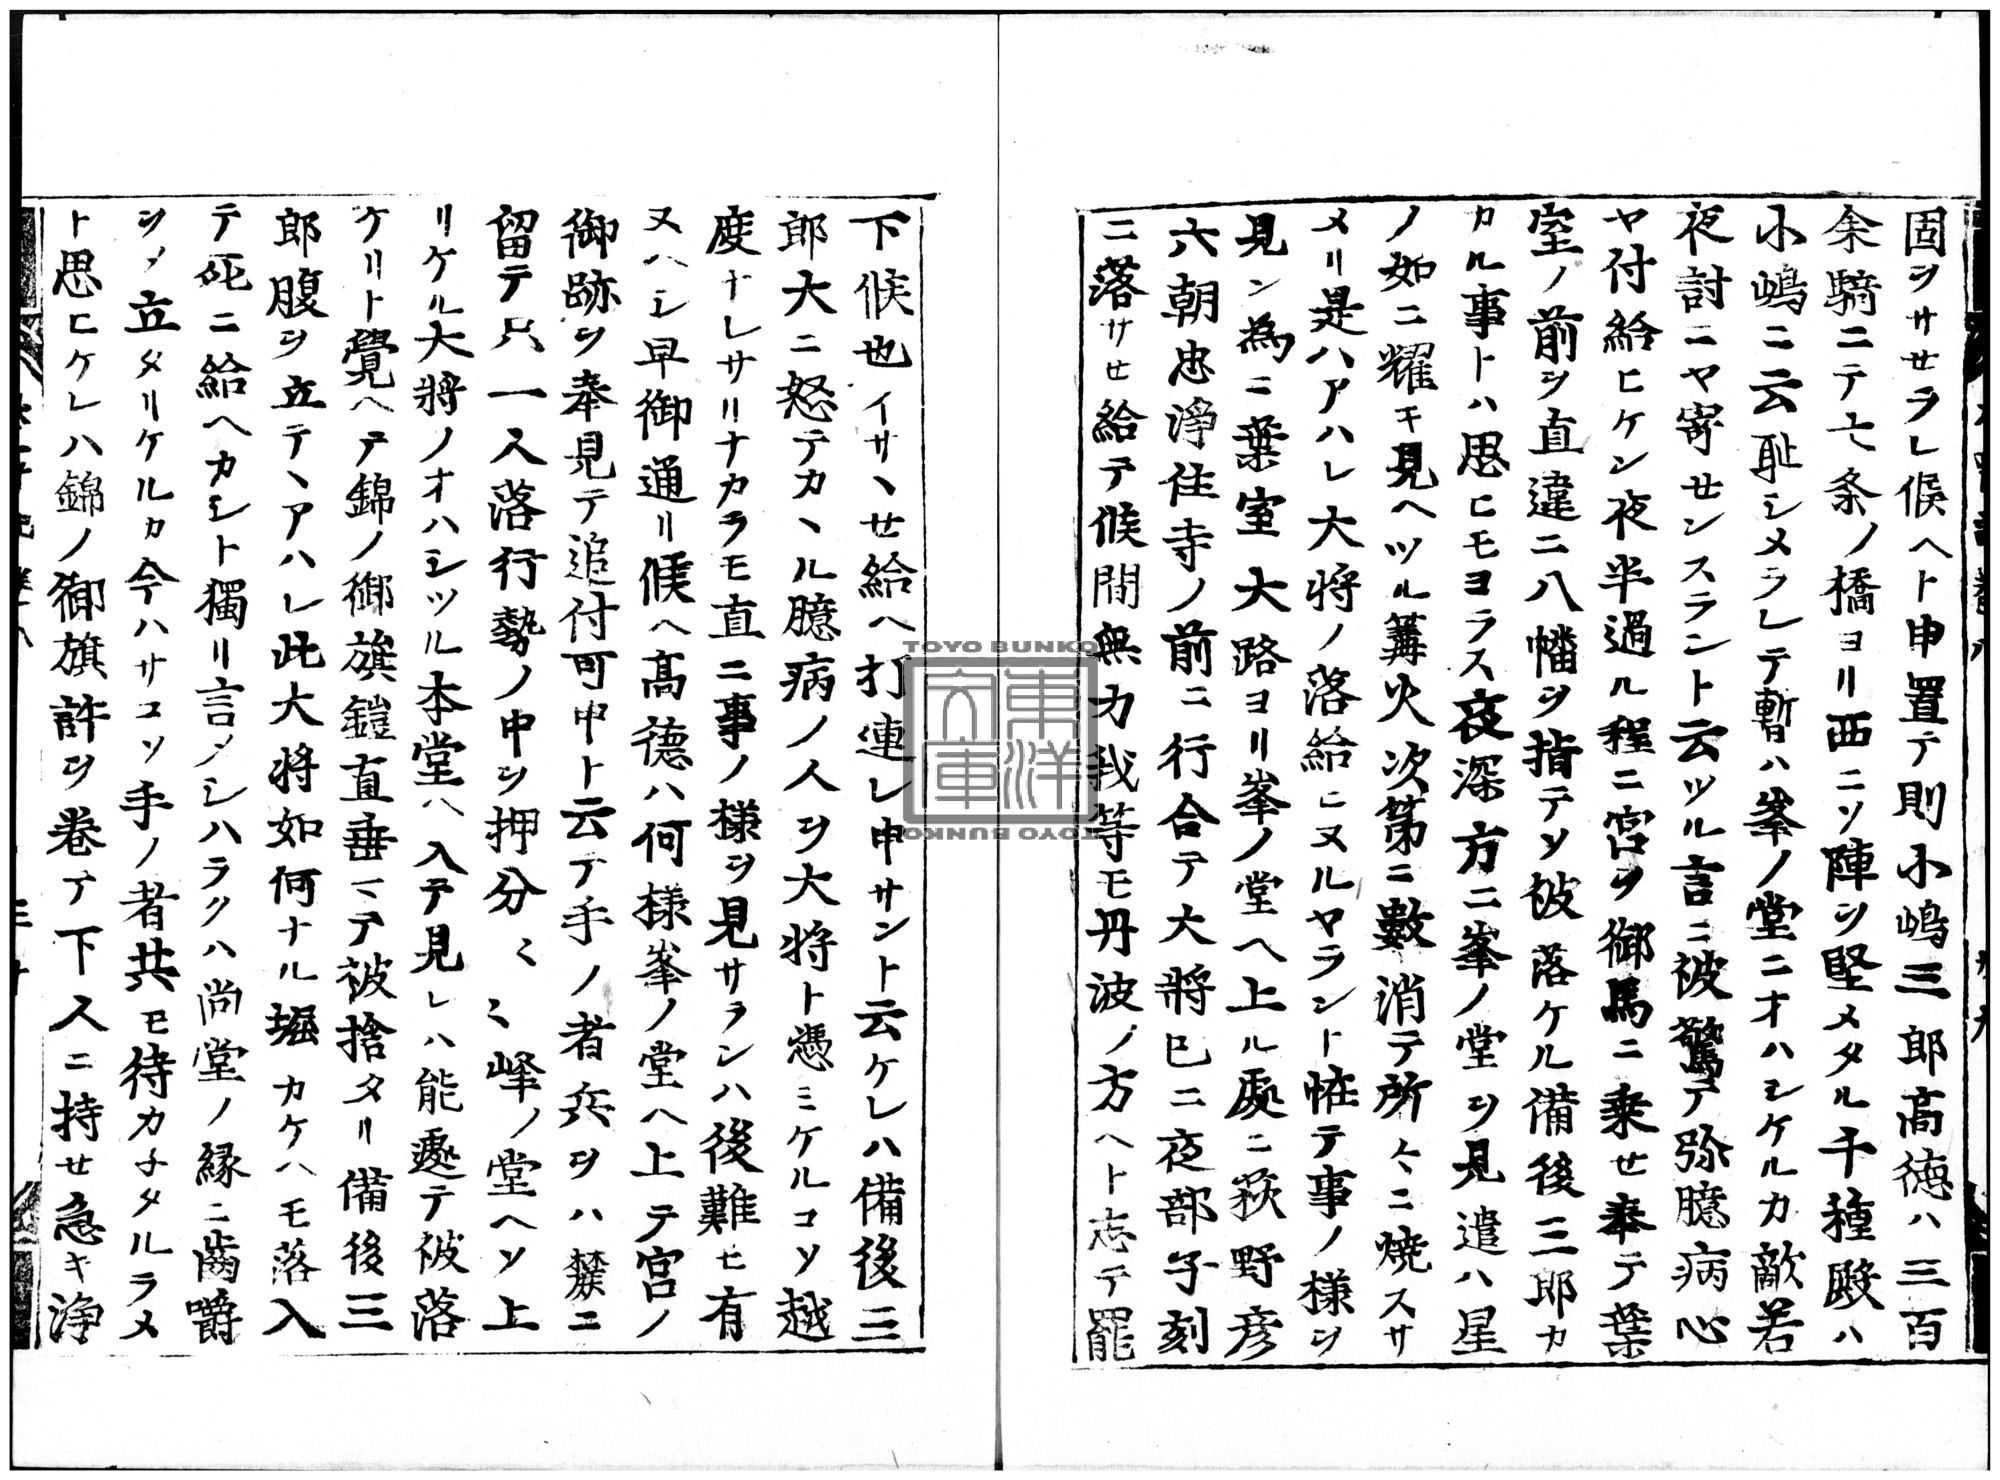 固ヲサセラレ候ヘト申置テ則小嶋三郎高徳ハ三百
余騎ニテ七条ノ橋ヨリ西ニソ陣ヲ堅メタル千種殿ハ
小嶋ニ云耻シメラレテ暫ハ峯ノ堂ニオハシケルカ敵若
夜討ニヤ寄センスラント云ツル言ニ被驚テ弥臆病心
ヤ付給ヒケン夜半過ル程ニ宮ヲ御馬ニ乗セ奉テ葉
室ノ前ヲ直違ニ八幡ヲ指テソ被落ケル備後三郎カ
カル事トハ思ヒモヨラス夜深方ニ峯ノ堂ヲ見遣ハ星
ノ如ニ耀キ見ヘツル篝火次第ニ數消テ所々ニ焼スサ
メリ是ハアハレ大将ノ落給ヒヌルヤラント恠テ事ノ様ヲ
見ン為ニ葉室大路ヨリ峯ノ堂ヘ上ル處ニ荻野彦
六朝忠浄住寺ノ前ニ行合テ大将已ニ夜部子刻
ニ落サセ給テ候間無力我等モ丹波ノ方ヘト志テ罷
下候也イサヽセ給ヘ打連レ申サント云ケレハ備後三
郎大ニ怒テカヽル臆病ノ人ヲ大将ト憑ミケルコソ越
度ナレサリナカラモ直ニ事ノ様ヲ見サランハ後難モ有
ヌヘシ早御通リ候ヘ高徳ハ何様峯ノ堂ヘ上テ宮ノ
御跡ヲ奉見テ追付可申ト云テ手ノ者兵ヲハ麓ニ
留テ只一人落行勢ノ中ヲ押分〻〻峰ノ堂ヘソ上
リケル大将ノオハシツル本堂ヘ入テ見レハ能遽テ被落
ケリト覺ヘテ錦ノ御旗鎧直垂マテ被捨タリ備後三
郎腹ヲ立テヽアハレ此大将如何ナル堀カケヘモ落入
テ死ニ給ヘカシト獨リ言メシハラクハ尚堂ノ縁ニ歯嚼
ヲメ立タリケルカ今ハサコソ手ノ者共モ待カ子タルラメ
ト思ヒケレハ錦ノ御旗許ヲ巻テ下人ニ持セ急キ浄
TOYO BUNKO
東洋文庫
TOYO BUNKO